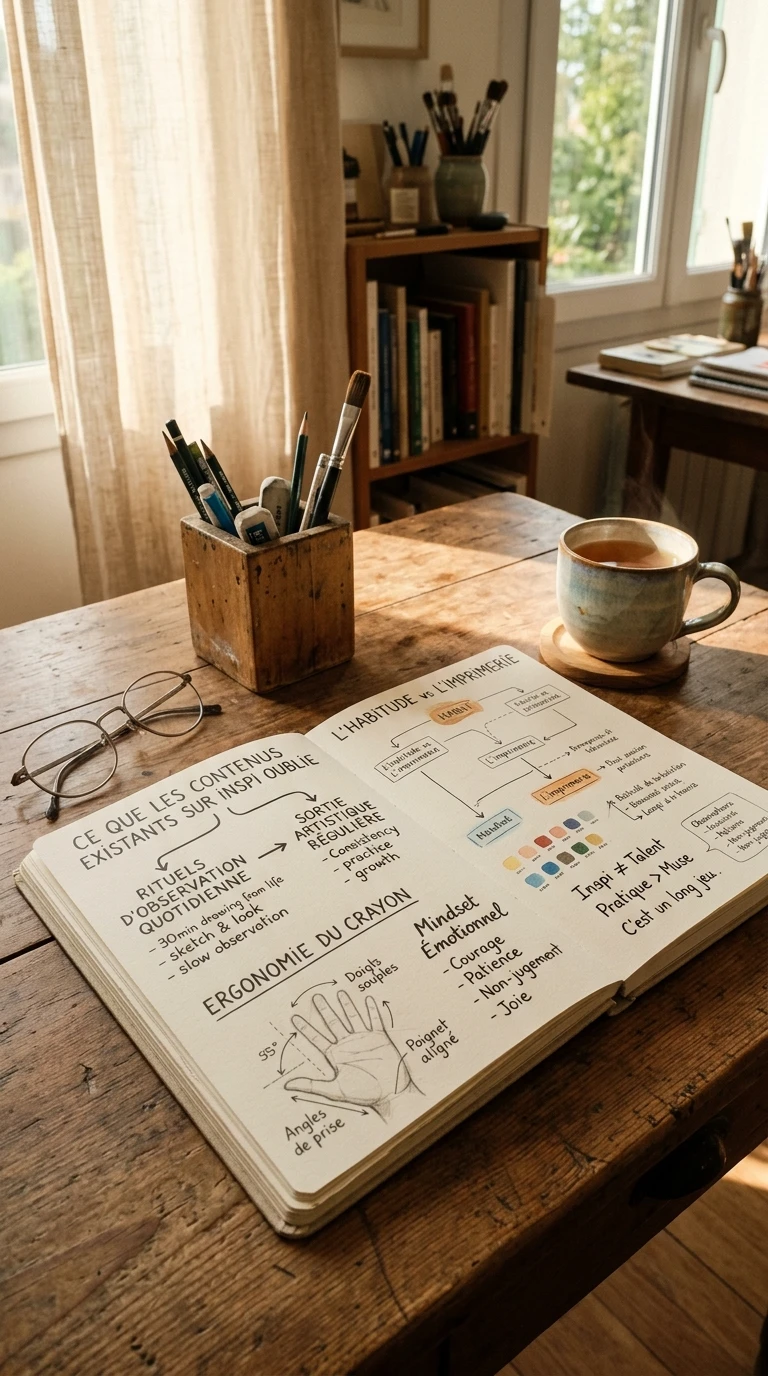 CE QUE LES CONTENUS
EXISTANTS SUR INSPI OUBLIE
RITUELS
D'OBSERVATION
QUOTIDIENNE
- 30min drawing from life
- sketch & look
- slow observation
SORTIE
ARTISTIQUE
RÉGULIÈRE
- Consistency
- practice
- growth
ERGONOMIE DU CRAYON
Doigts
souples
95°
Poignet
aligné
Angles
de prise
Mindset
Émotionnel
- Courage
- Patience
- Non-jugement
- Joie
L'HABITUDE vs L'IMPRIMERIE
L'imprimerie
Inspi ≠ Talent
Pratique > Muse
C'est un long jeu.